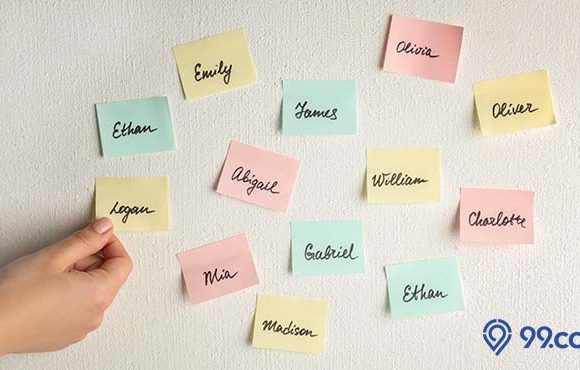 Olivia
Emily
Oliver
James
Ethan
Abigail
William
Logan
Charlotte
Gabriel
Mia
Ethan
Madison
99.co